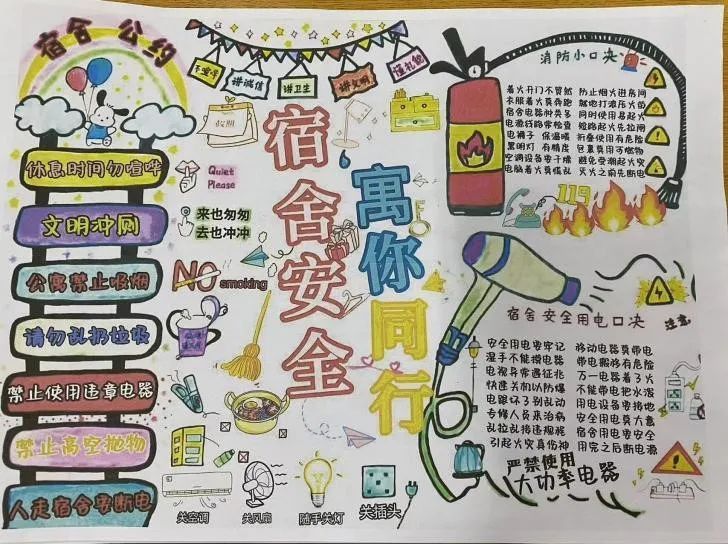 宿舍 公约
讲诚信
讲卫生
讲文明
懂礼貌
宿舍安全
寓你同行
休息时间勿喧哗
文明冲厕
公寓禁止吸烟
请勿乱扔垃圾
禁止使用违章电器
禁止高空抛物
人走宿舍要断电
Quiet
Please
来也匆匆
去也冲冲
NO smoking
关空调
关风扇
随手关灯
关插头
消防小口决
着火开门不贸然 防止烟火进房间
衣服着火莫奔跑 就地打滚压火苗
宿舍电器种类多 同时使用易起火
电源线路常检查 短路起火先拉闸
电褥子 保温暖 折叠使用有危险
黑明灯 有精度 包裹莫用可燃物
空调设备要干燥 避免受潮起火灾
电脑着火莫慌乱 灭火之前先断电
119
宿舍安全用电口决
注意
安全用电要牢记 移动电器莫带电
湿手不能摸电器 带电搬移有危险
电视异常遇征兆 万一电器着了火
快速关机以防爆 不能带电把水泼
电跳坏了别乱动 用电设备要接地
专修人员来治病 安全用电莫大意
乱拉乱接违规程 宿舍用电要安全
引起火灾真伤神 用完之后断电源
严禁使用
大功率电器